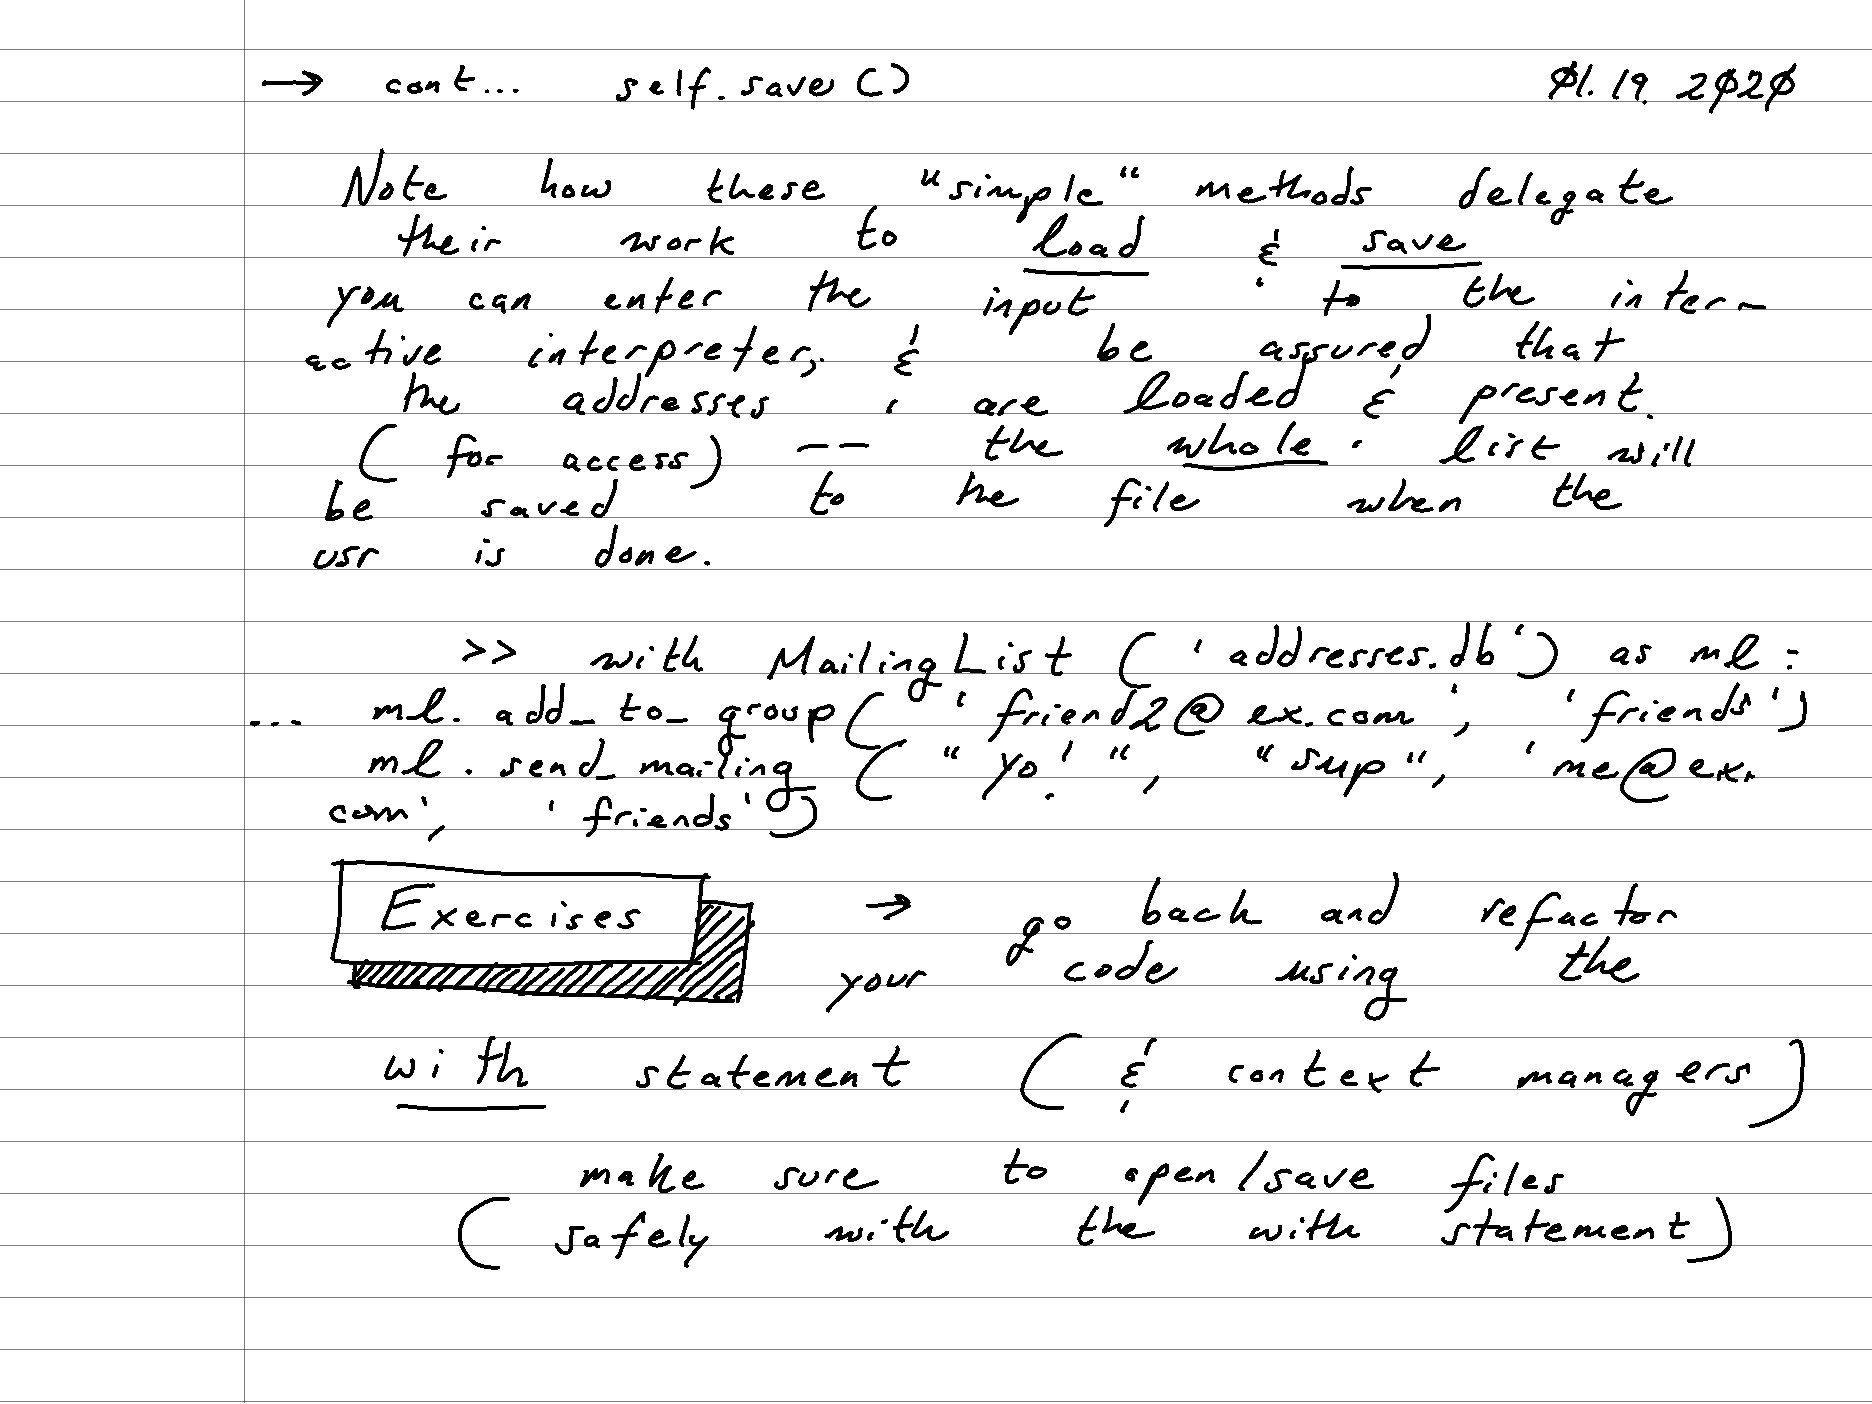 → cont... self.save() 01.19.2020
Note how these "simple" methods delegate
their work to load & save
you can enter the input to the inter-
active interpreter, & be assured that
the addresses are loaded & present.
(for access) -- the whole list will
be saved to the file when the
usr is done.
>> with MailingList ('addresses.db') as ml:
... ml.add_to_group( 'friend2@ex.com', 'friends')
ml.send_mailing ( "yo!", "sup", 'me@ex.
com', 'friends')
Exercises → go back and refactor
your code using the
with statement ( & context managers)
make sure to open/save files
(safely with the with statement)